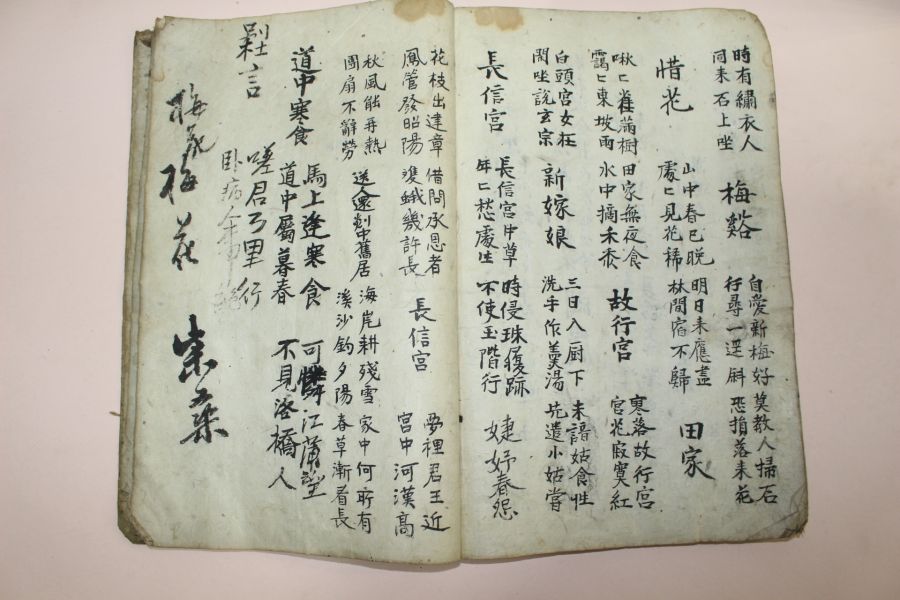 時有繡衣人
同来石上坐
梅谿
自愛新梅好
行尋一逕斜
莫教人掃石
恐損落来花
惜花
山中春已晩
處々見花稀
明日来應盡
林間宿不歸
田家
啾々雀滿樹
靄々東坡雨
田家無夜食
水中摘禾黍
故行宮
寥落故行宮
宮花寂寞紅
白頭宮女在
閑坐說玄宗
新嫁娘
三日入厨下
洗手作羹湯
未諳姑食性
先遣小姑嘗
長信宮
長信宮中草
年々愁處生
時侵珠履跡
不使玉階行
婕妤春怨
花枝出建章
鳳管發昭陽
借問承恩者
雙蛾幾許長
長信宮
夢裡君王近
宮中河漢高
秋風能再熱
團扇不辭勞
送人還剡中舊居
海岸耕殘雪
溪沙釣夕陽
家中何所有
春草漸看長
道中寒食
馬上逢寒食
道中屬暮春
可憐江蒲望
不見洛橋人
嗟君万里行
卧病
言
梅花梅花